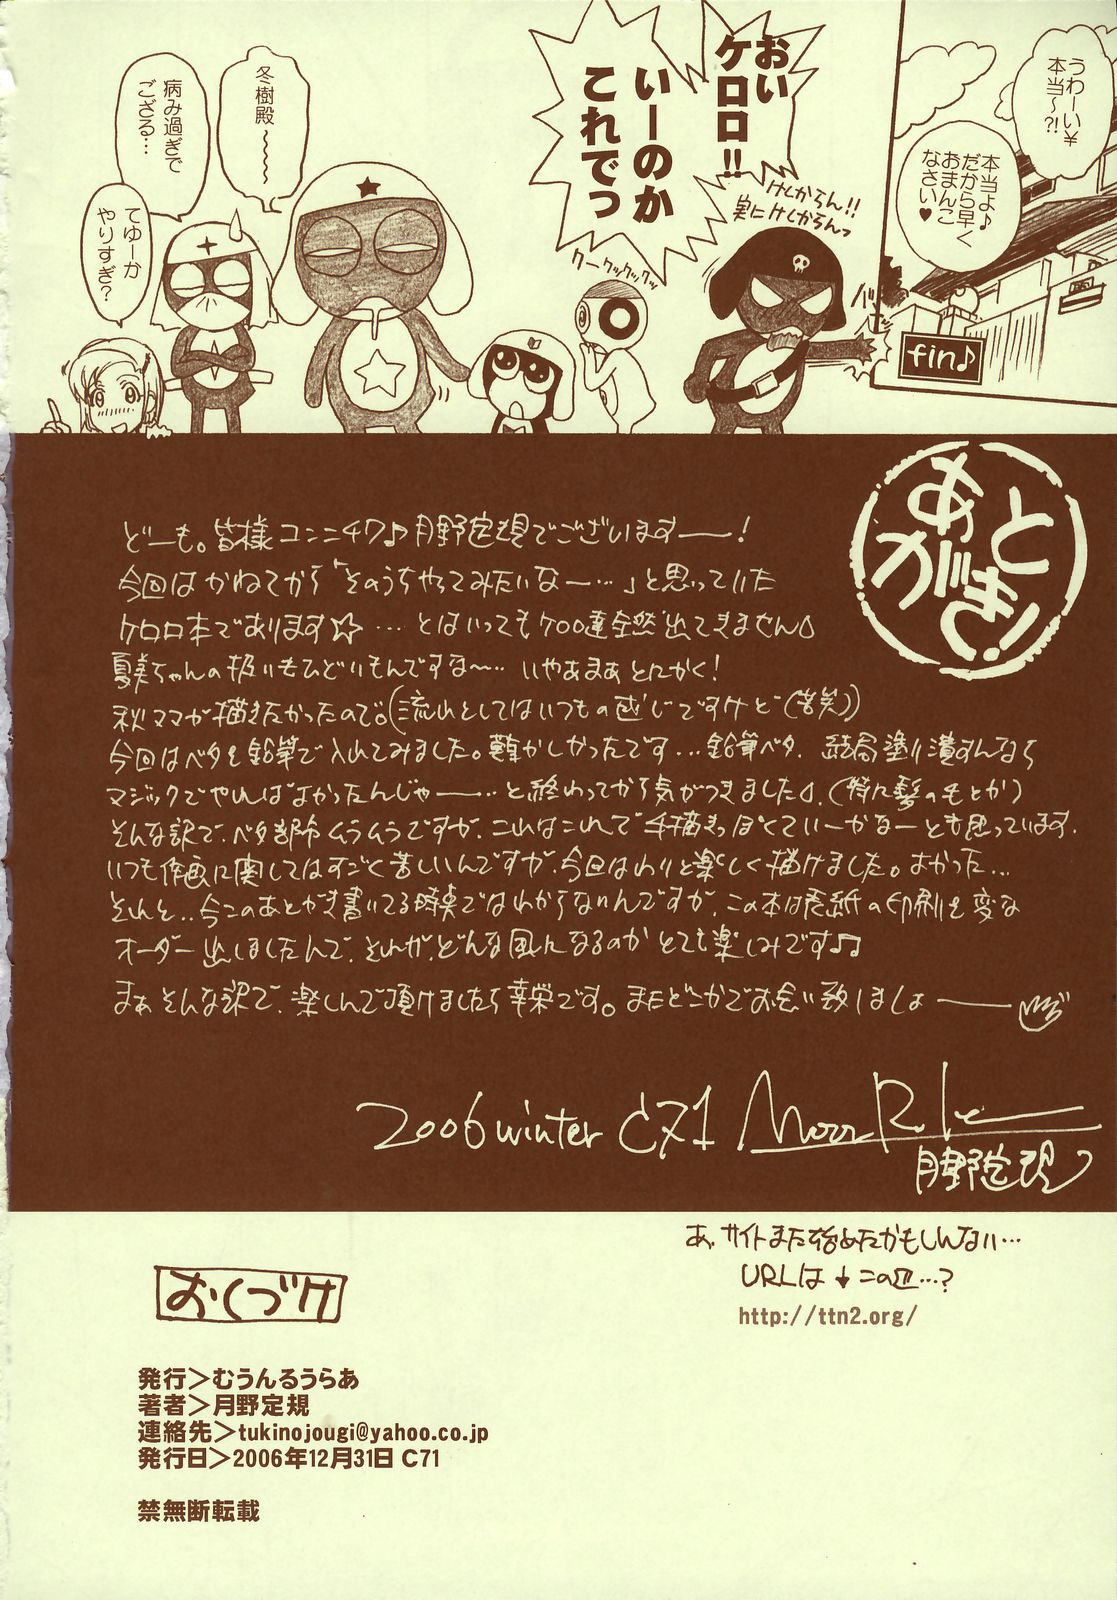 うわーい¥
本当〜?!
本当よ♪
だから早く
おまんこ
なさい♥
fin♪
おい
ケロロ!!
いーのか
これでっ
けしからん!!
実にけしからんっ
クークックックッ
冬樹殿
〜〜〜
病み過ぎで
ござる…
てゆーか
やりすぎ?
あとがき!
どーも。皆様コンニチワ♪月野定規でございますー!
今回はかねてから「そのうちやってみたいなー…」と思っていた
ケロロ本であります☆…とはいってもケロロ達全然出てきません
夏美ちゃんの扱いもひどいもんですな〜… いやあまぁとにかく!
秋ママが描きたかったので。(流れとしてはいつもの感じですけど(苦笑))
今回はベタを鉛筆で入れてみました。難かしかったです…鉛筆ベタ。結局塗り潰すんなら
マジックでやればよかったんじゃー…と終わってから気がつきました。(特に髪のもとか)
そんな訳で、ベタ部分ムラムラですが、これはこれで手描きっぽくていーかなーとも思っています。
いつも作画に関してはすごく苦しいんですが、今回はわりと楽しく描けました。よかった…
それと、今このあとがき書いてる時点ではわからないんですが、この本は表紙の印刷を変な
オーダー出しましたんで、それが、どんな風になるのかとても楽しみです♪
まぁそんな訳で、楽しんで頂けましたら幸栄です。またどこかでお会い致しましょー
2006 winter C71
月野定規
あ、サイトまた始めたかもしんない…
URLは↓この辺…?
http://ttn2.org/
おくづけ
発行>むうんるうらあ
著者>月野定規
連絡先>tukinojougi@yahoo.co.jp
発行日>2006年12月31日 C71
禁無断転載